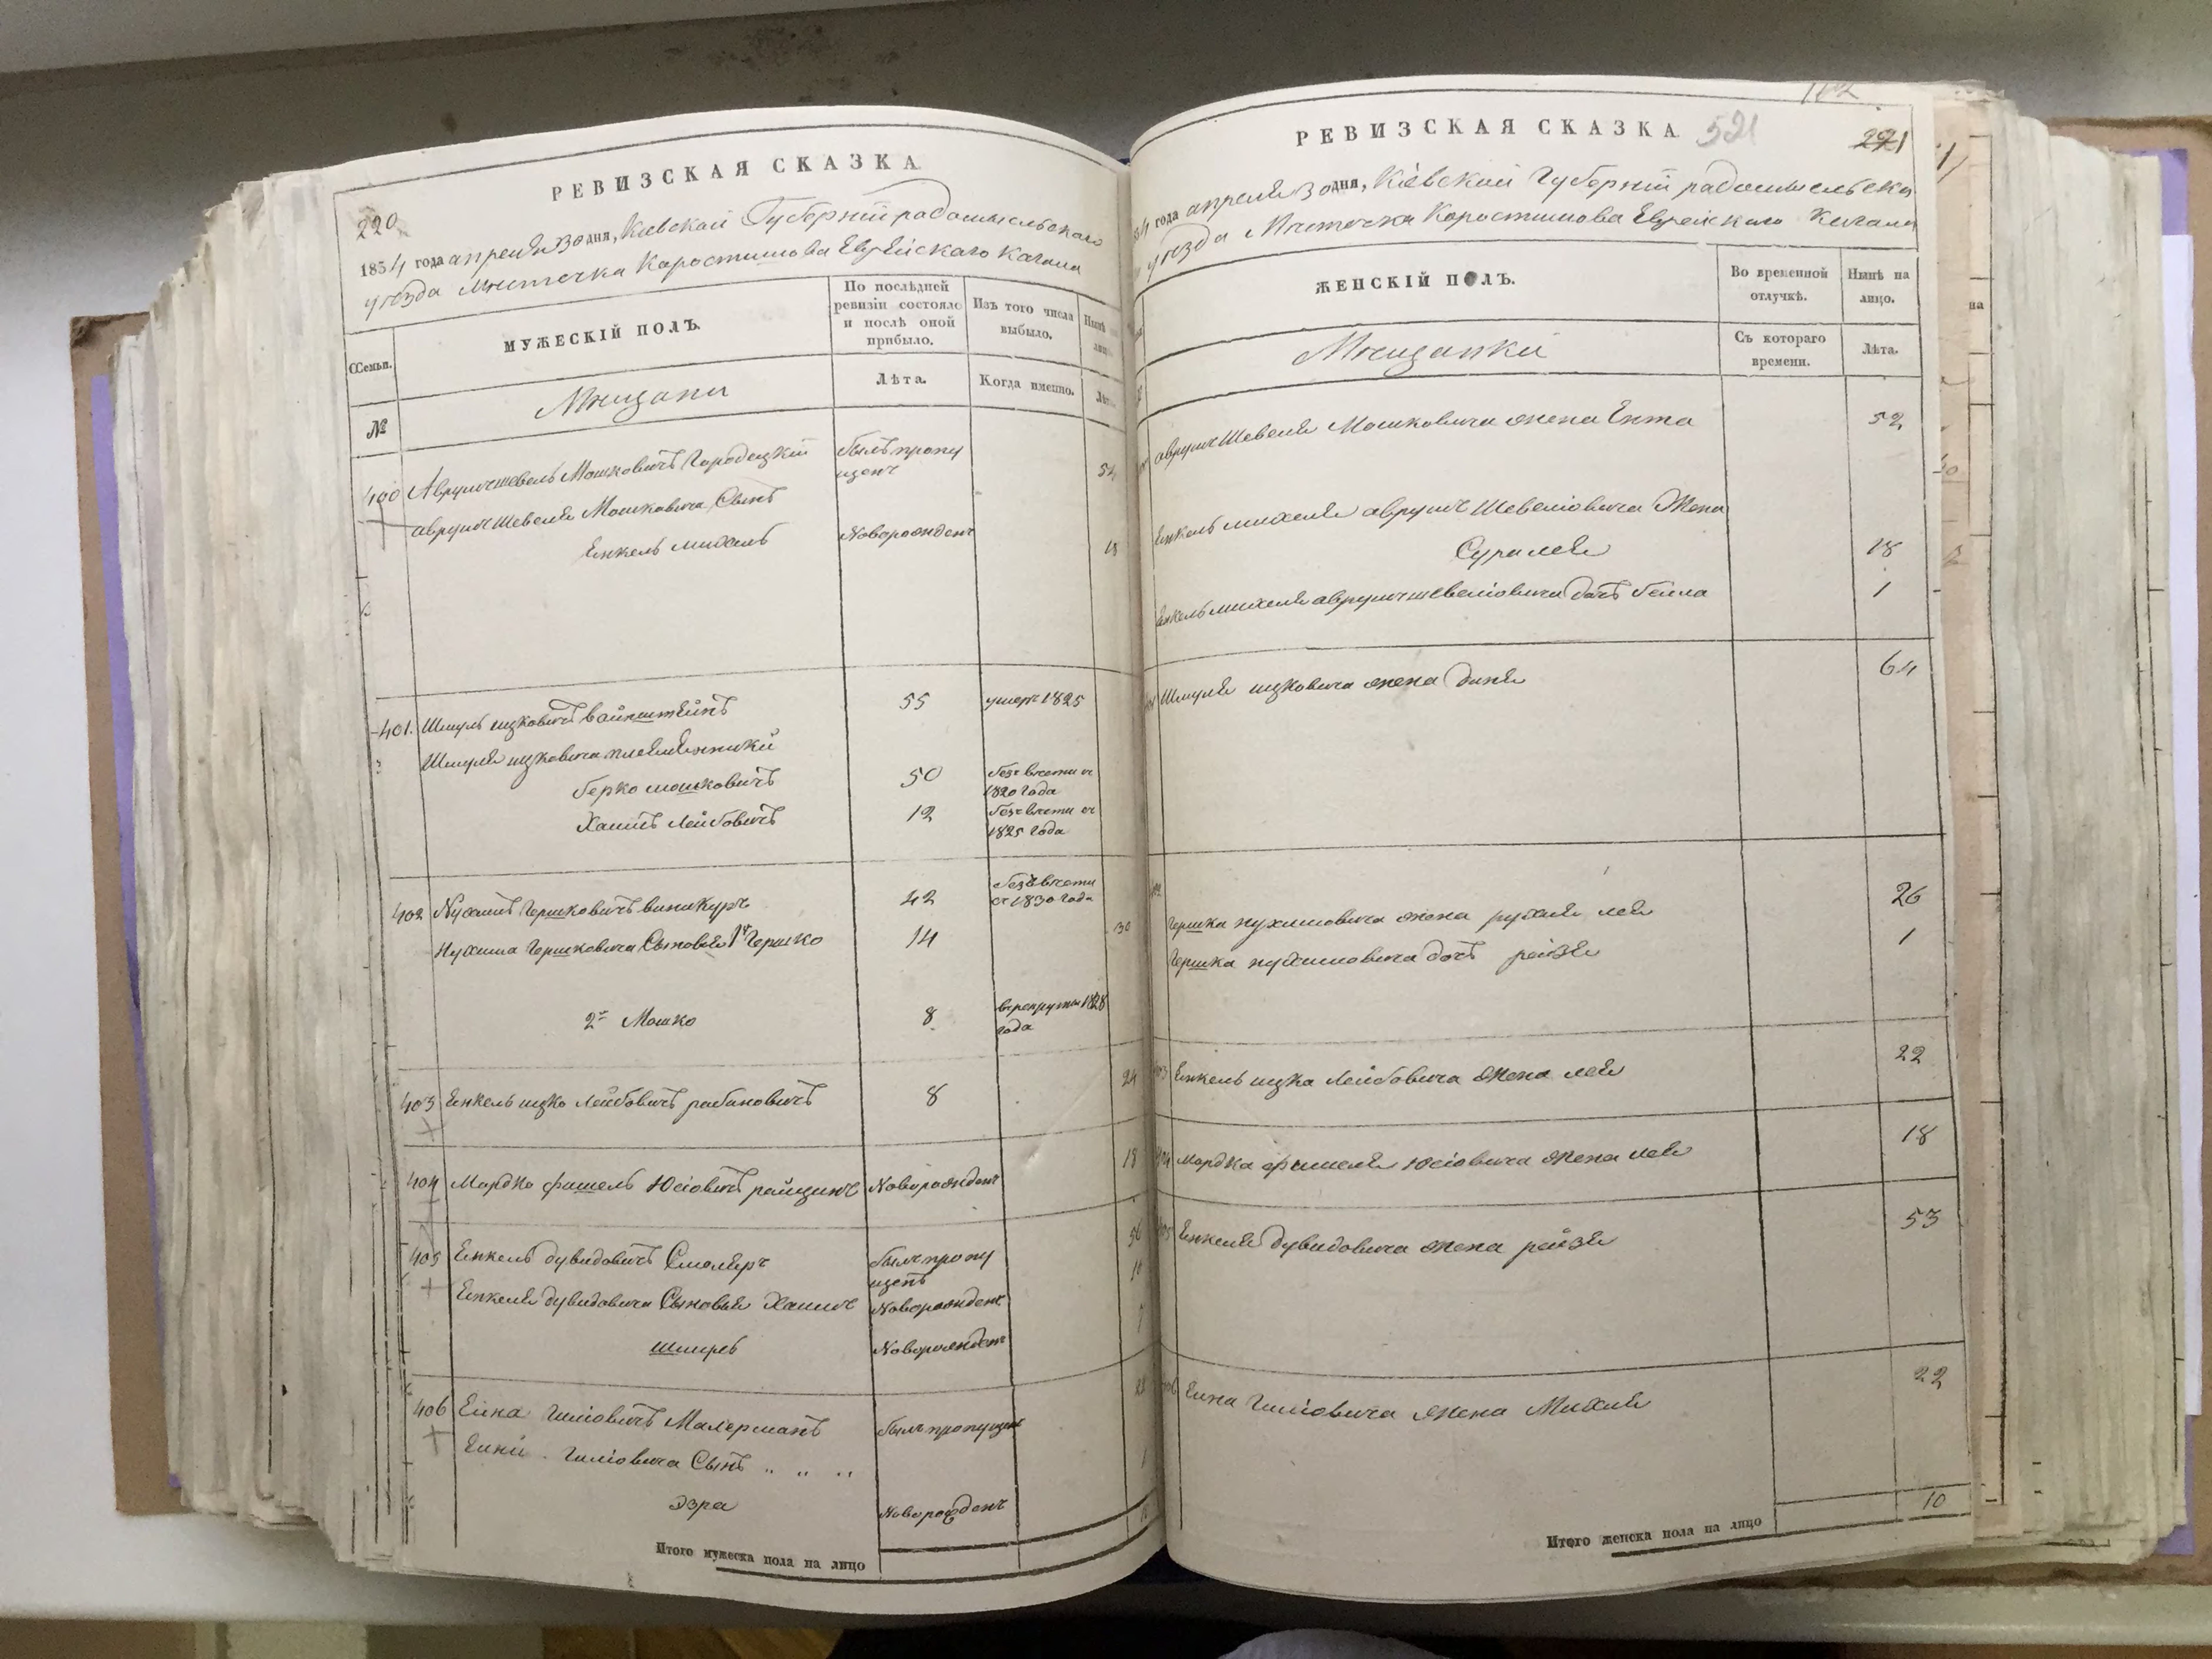 220
РЕВИЗСКАЯ СКАЗКА
1834 года апреля 30 дня, Кіевской Губерніи радомысльского
уезда Мѣстечка Коростишова Еврейскаго Кагала
Семьи.
МУЖЕСКІЙ ПОЛЪ.
По послѣдней ревизіи состояло и послѣ оной прибыло.
Изъ того числа выбыло.
№
Мѣщани
Лѣта.
Когда имецно.
400 Аврумъ шевель Мошковичъ Городецкій былъ пропу щенъ 54
аврумъ Шевеля Мошковича Сынъ
Енкель михель Новорожденъ 18
401. Шмуль ицковичъ вайнштейнъ 55 умеръ 1825
Шмуля ицковича племянники
Герко мошковичъ 50 безъ вѣсти съ 1820 года
Хаимъ Лейбовичъ 12 безъ вѣсти съ 1825 года
402 Нухимъ Гершковичъ винокуръ 42 безъ вѣсти съ 1830 года
Нухима Гершковича Сыновья 1й Гершко 14 30
2й Мошко 8 врекруты 1828 года
403 Енкель ицко Лейбовичъ рабиновичъ 8 24
404 Мордко фишель Юсіовичъ райцинъ Новорожденъ 18
405 Енкель дувидовичъ Смоляръ былъ пропу щенъ 56
Енкеля дувидовича Сыновья Хаимъ Новорожденъ
Шмиръ Новорожденъ 7
406 Елка Гиліовичъ Малерманъ былъ пропущенъ
Елки Гиліовича Сынъ " " "
Эзра Новорожденъ 1
Итого мужеска пола на лицо
РЕВИЗСКАЯ СКАЗКА 521
221
года апреля 30 дня, Кіевской Губерніи радомысльска
уезда Мѣстечка Коростишова Еврейскаго Кагала
ЖЕНСКІЙ ПОЛЪ.
Во временной отлучкѣ.
Нынѣ на лицо.
Мѣщанки
Съ котораго времени.
Лѣта.
аврумъ Шевеля Мошковича жена Ента 52
Енкель михеля аврумъ Шевеліовича Жена
Сура лея 18
Енкель михеля аврумъ шевеліовича дочь бейла 1
Шмуля ицковича жена Диня 64
Гершка нухимовича жена рухля лея 26
Гершка нухимовича дочь рейзя 1
403 Енкель ицка Лейбовича жена лея 22
404 Мордка фишеля Юсіовича жена лея 18
405 Енкеля дувидовича жена рейзя 53
406 Елка Гиліовича жена Михля 22
Итого женска пола на лицо 10